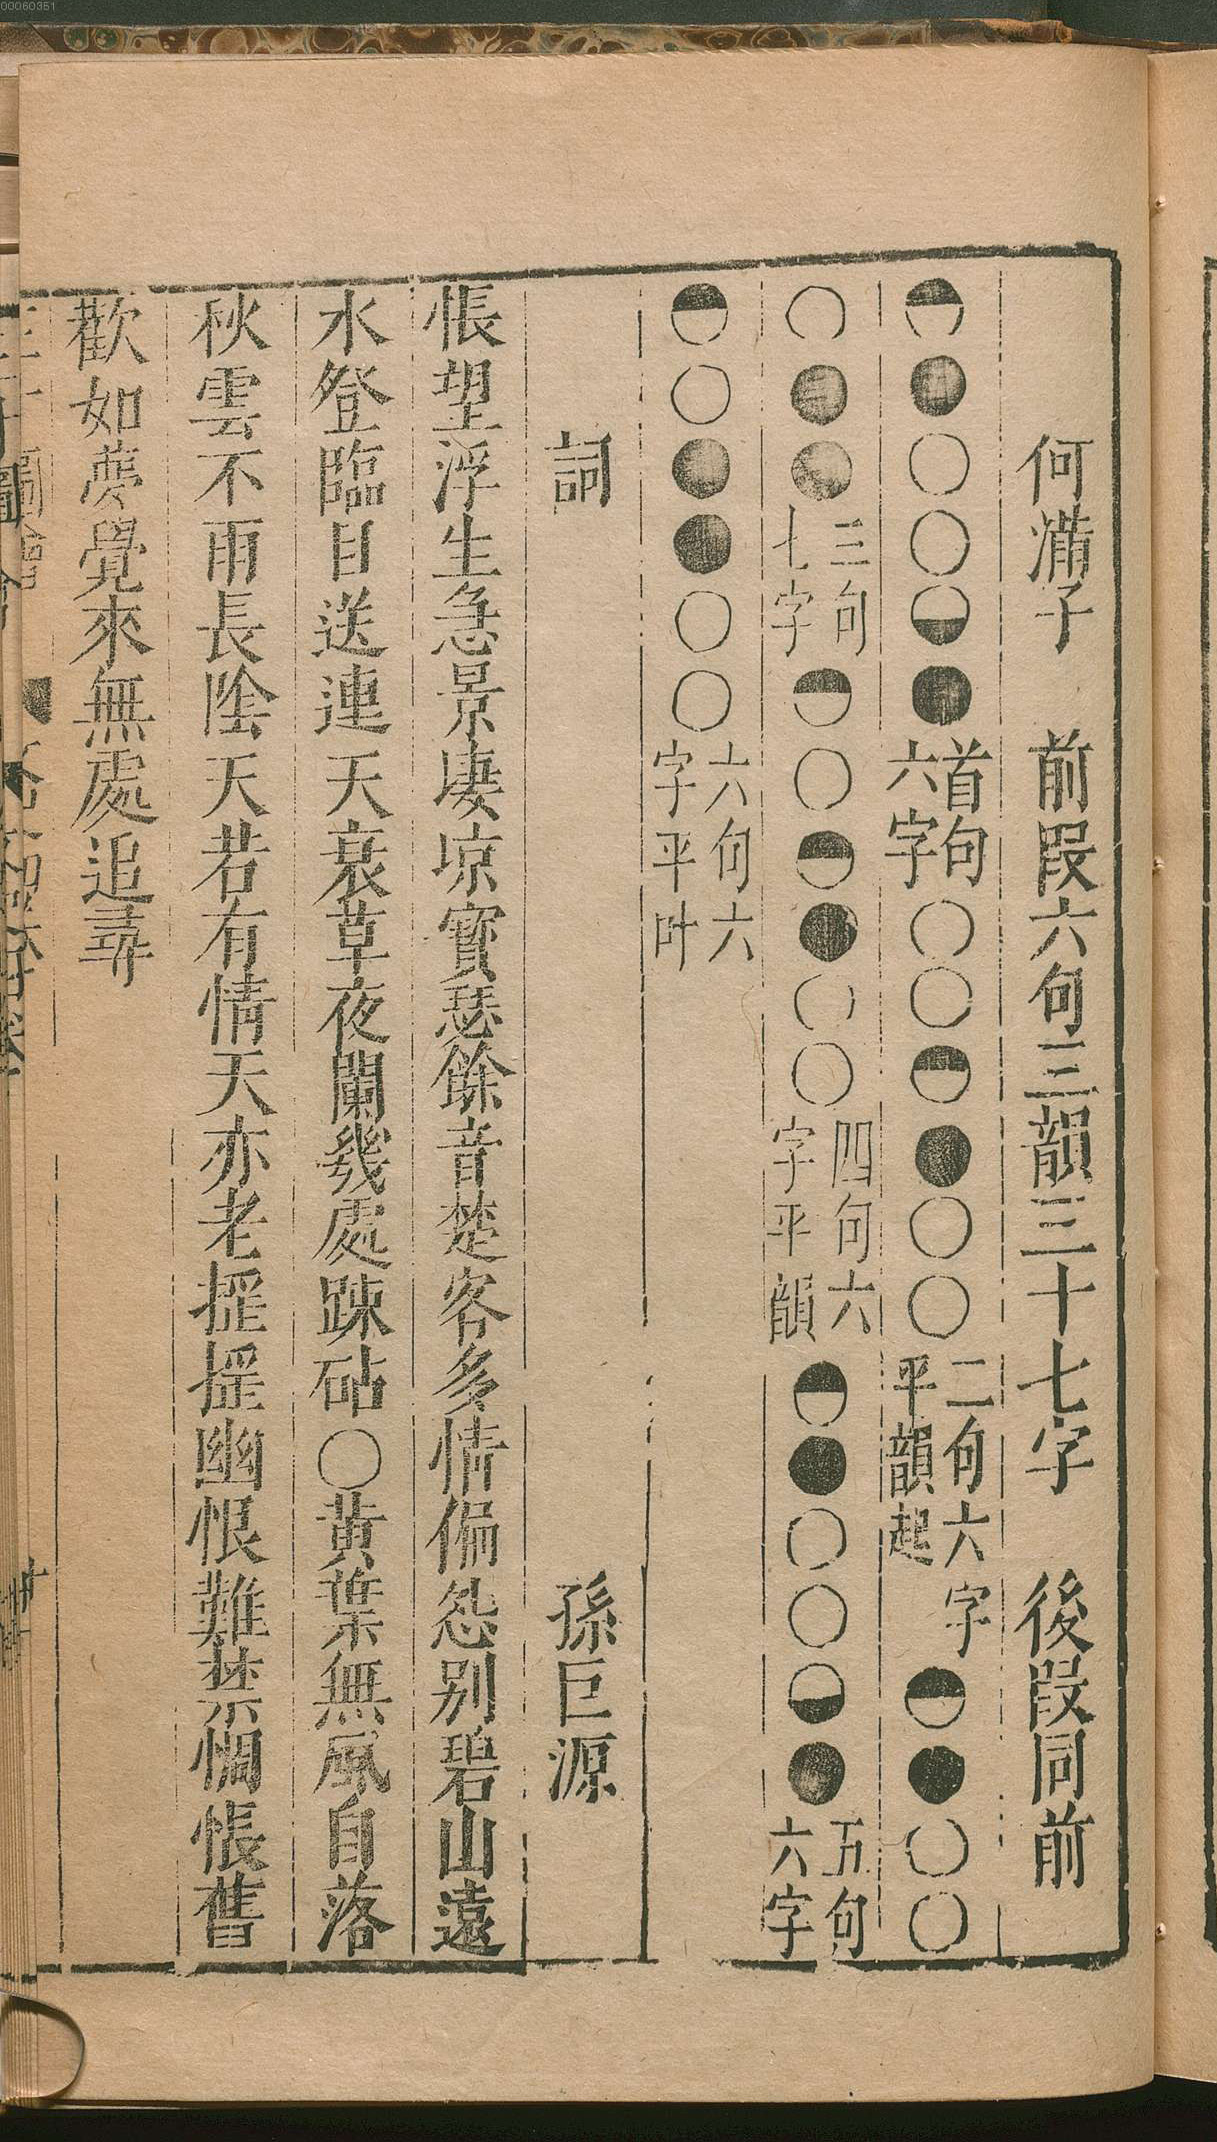 何滿子　前段六句三韻三十七字　後段同前
◓●○○◒●首句六字○○◓●○○二句六字平韻起◓●○○
○●●三句七字◓○◓●○○四句六字平韻◓●○○◒●五句六字
◓○●●○○六句六字平叶
詞　孫巨源
悵望浮生急景凄凉寶瑟餘音楚客多情偏怨别碧山遠
水登臨目送連天衰草夜闌幾處踈砧○黄葉無風自落
秋雲不雨長陰天若有情天亦老揺揺幽恨難禁惆悵舊
歡如夢覺來無處追尋
00060351